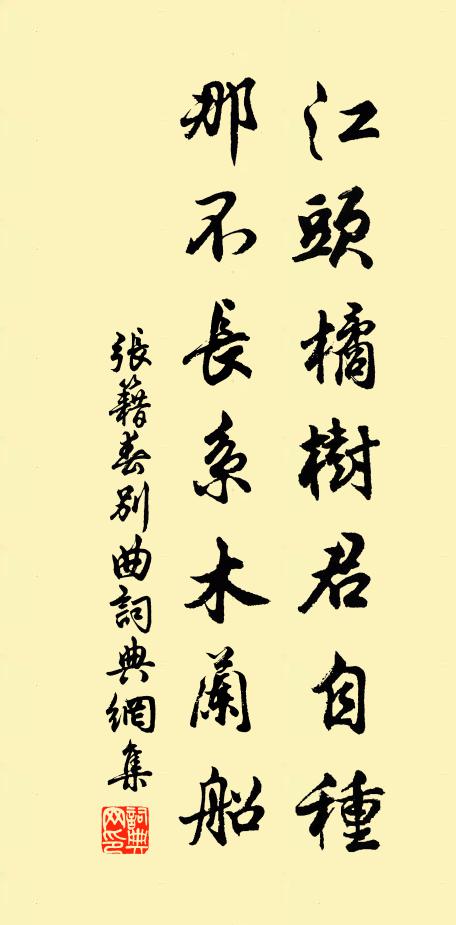 江頭橘樹君自種
那不長系木蘭船
張籍春別曲詞典網集
詞典网印